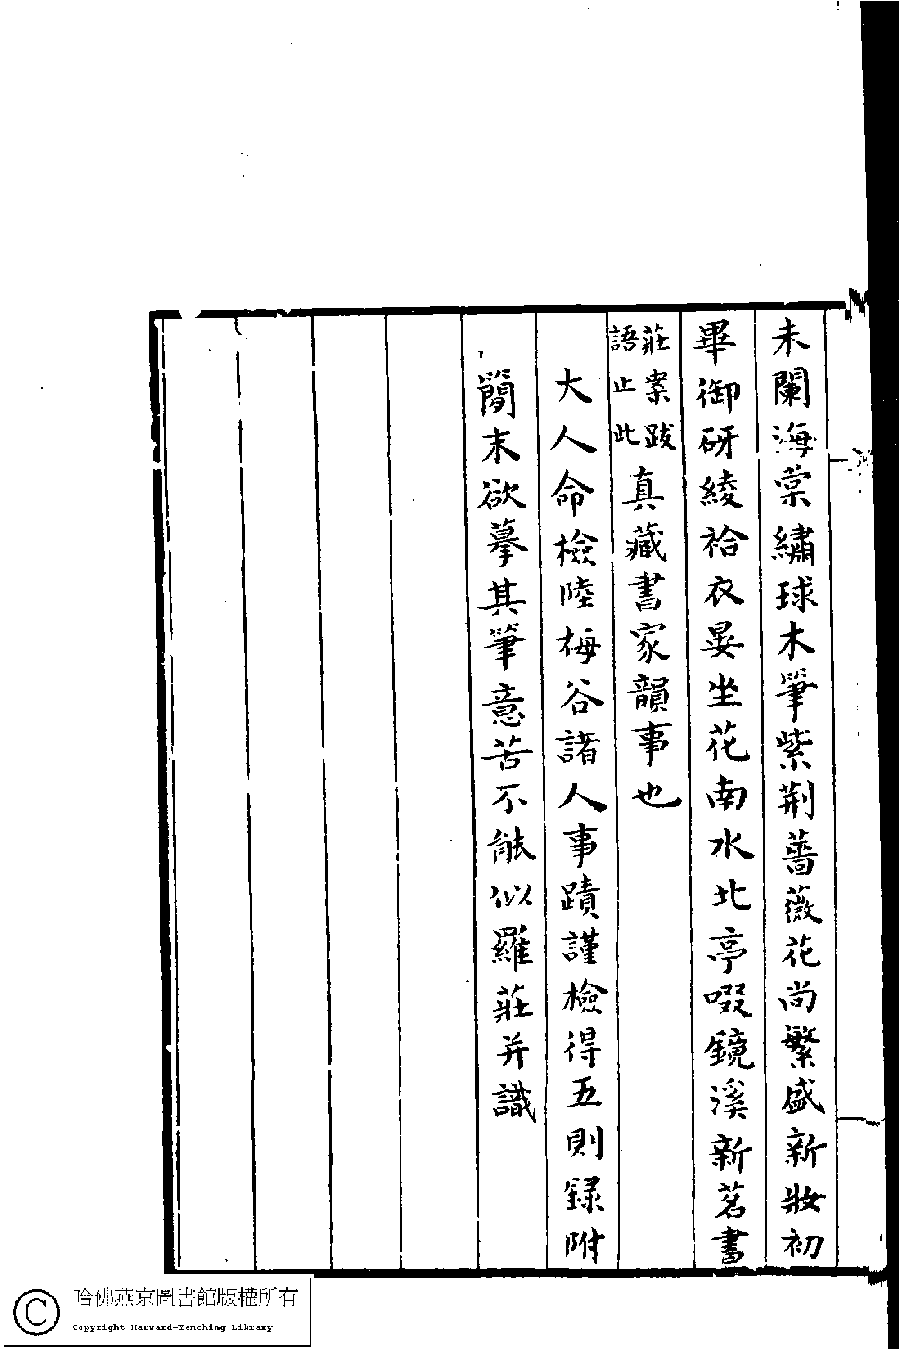 未闌海棠繡球木筆紫荆薔薇花尚繁盛新妝初
畢御研綾袷衣晏坐花南水北亭啜鏡溪新茗書
莊案跋
語止此
真藏書家韻事也
大人命檢陸梅谷諸人事蹟謹檢得五則録附
簡末欲摹其筆意苦不能似羅莊并識
哈佛燕京圖書館版權所有
Copyright Harvard-Yenching Library